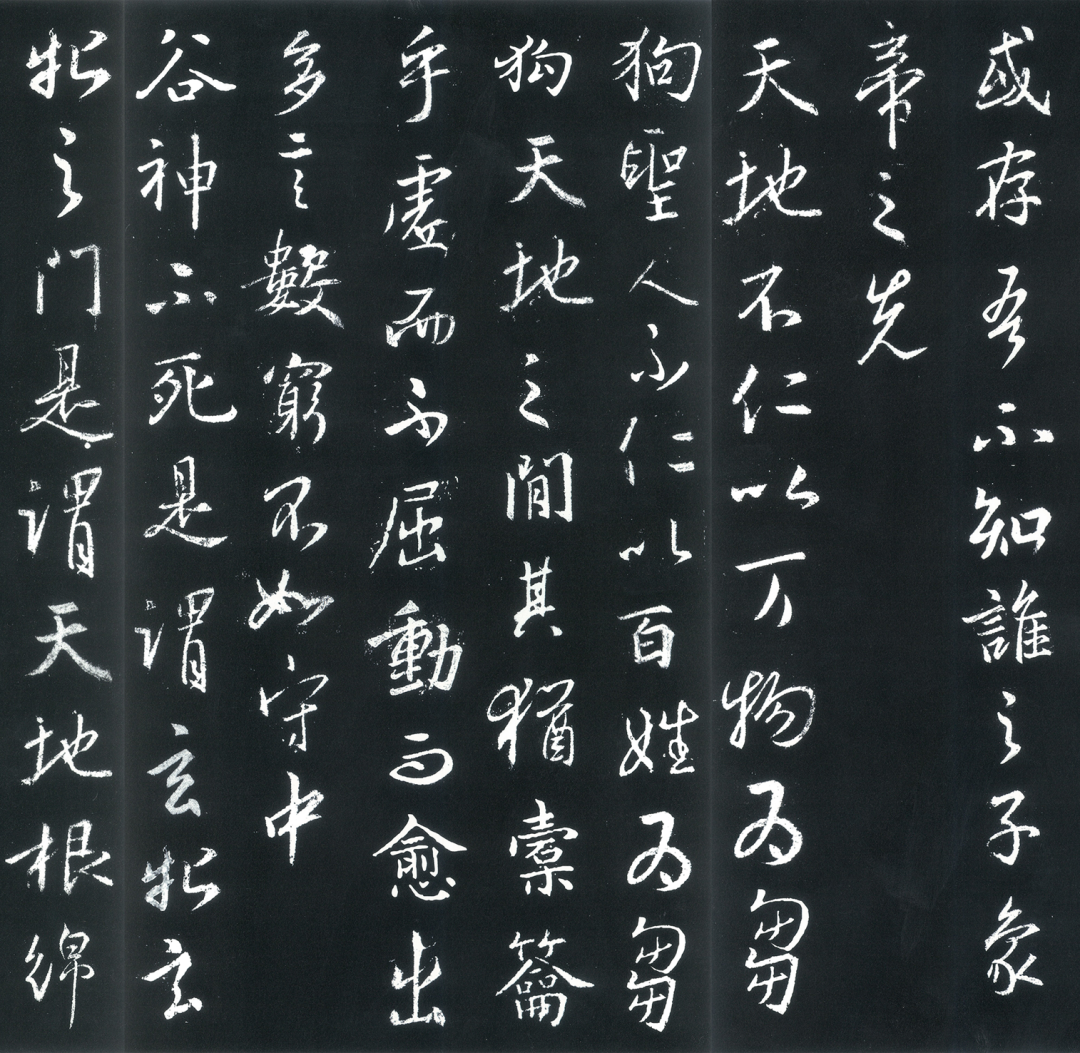 或存吾不知誰之子象
帝之先
天地不仁以万物為芻
狗聖人不仁以百姓為芻
狗天地之間其猶橐籥
乎虛而不屈動而愈出
多言數窮不如守中
谷神不死是謂玄牝玄
牝之門是謂天地根綿